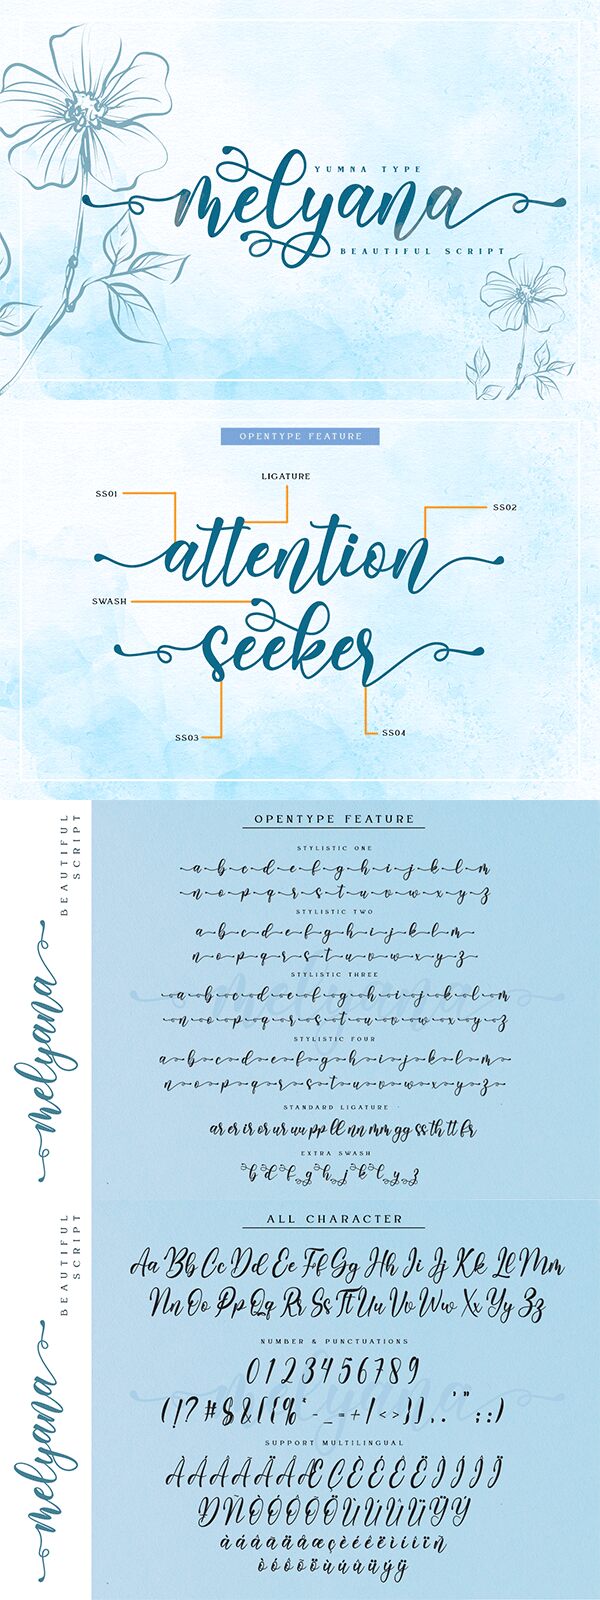 YUMNA TYPE
melyana
BEAUTIFUL SCRIPT
OPENTYPE FEATURE
LIGATURE
SS01
SS02
attention
SWASH
seeker
SS03
SS04
BEAUTIFUL
SCRIPT
melyana
OPENTYPE FEATURE
STYLISTIC ONE
a b c d e f g h i j k l m
n o p q r s t u v w x y z
STYLISTIC TWO
a b c d e f g h i j k l m
n o p q r s t u v w x y z
STYLISTIC THREE
a b c d e f g h i j k l m
n o p q r s t u v w x y z
STYLISTIC FOUR
a b c d e f g h i j k l m
n o p q r s t u v w x y z
STANDARD LIGATURE
ar er ir or ur uu pp ll nn mm gg ss th tt fr
EXTRA SWASH
b d f g h j k l y z
melyana
BEAUTIFUL
SCRIPT
melyana
ALL CHARACTER
Aa Bb Cc Dd Ee Ff Gg Hh Ii Jj Kk Ll Mm
Nn Oo Pp Qq Rr Ss Tt Uu Vv Ww Xx Yy Zz
NUMBER & PUNCTUATIONS
0 1 2 3 4 5 6 7 8 9
( ! ? # $ & { [ % * - _ = + / < > ] } , . ' " ; : )
melyana
SUPPORT MULTILINGUAL